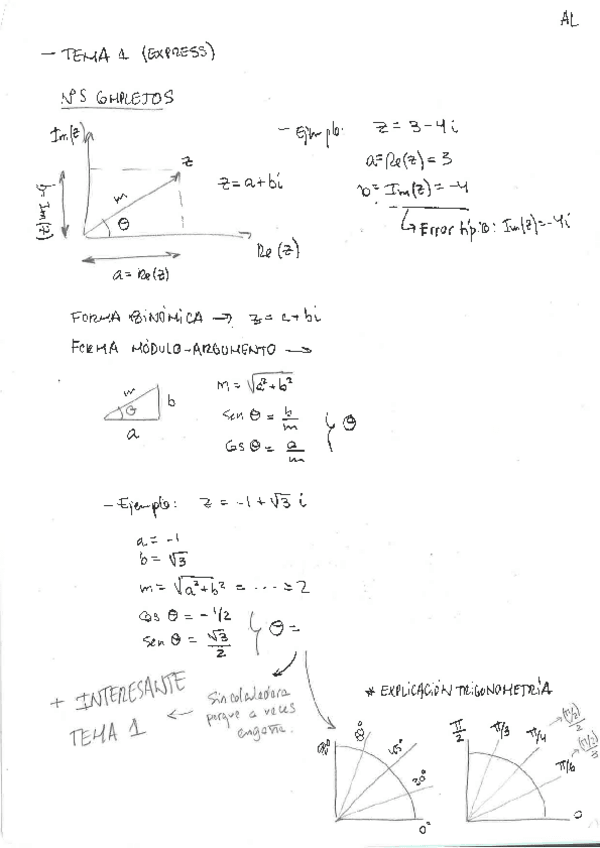 AL
- TEMA 1 (EXPRESS)
NºS COMPLEJOS
Im(z)
z
m
θ
b=Im(z)
z=a+bi
Re(z)
a=Re(z)
- Ejemplo: z=3-4i
a=Re(z)=3
b=Im(z)=-4
↳ Error típico: Im(z)=-4i
FORMA BINÓMICA → z=a+bi
FORMA MÓDULO-ARGUMENTO →
m
θ
b
a
m=√a²+b²
sen θ = b/m
cos θ = a/m
} θ
- Ejemplo: z=-1+√3 i
a=-1
b=√3
m=√a²+b² = ..... = 2
cos θ = -1/2
sen θ = √3/2
} θ =
+ INTERESANTE
TEMA 1
← Sin calculadora
porque a veces
engaña.
* EXPLICACIÓN TRIGONOMETRÍA
90°
60°
45°
30°
0°
π/2
π/3
π/4
→ (π/2)/2
π/6
→ (π/2)/3
0